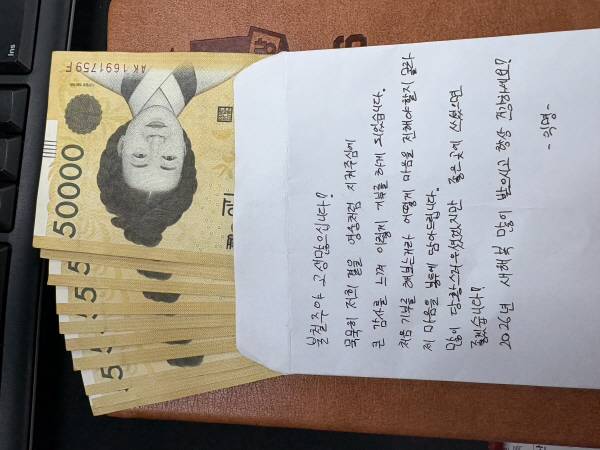 불철주야 고생많으십니다?
묵묵히 저희 곁을 여상처럼 지켜주심에
큰 감사를 느껴 이렇게 기부를 하게 되었습니다.
처음 기부를 해보는거라 어떻게 마음을 전해야할지 몰라
제 마음을 봉투에 담아드립니다.
많이 당황스러우셨겠지만 좋은곳에 쓰셨으면
좋겠습니다?
2026년 새해복 많이 받으시고 항상 건강하세요?
- 익명 -
AK1691759F
50000
5
5
5
5
Ins